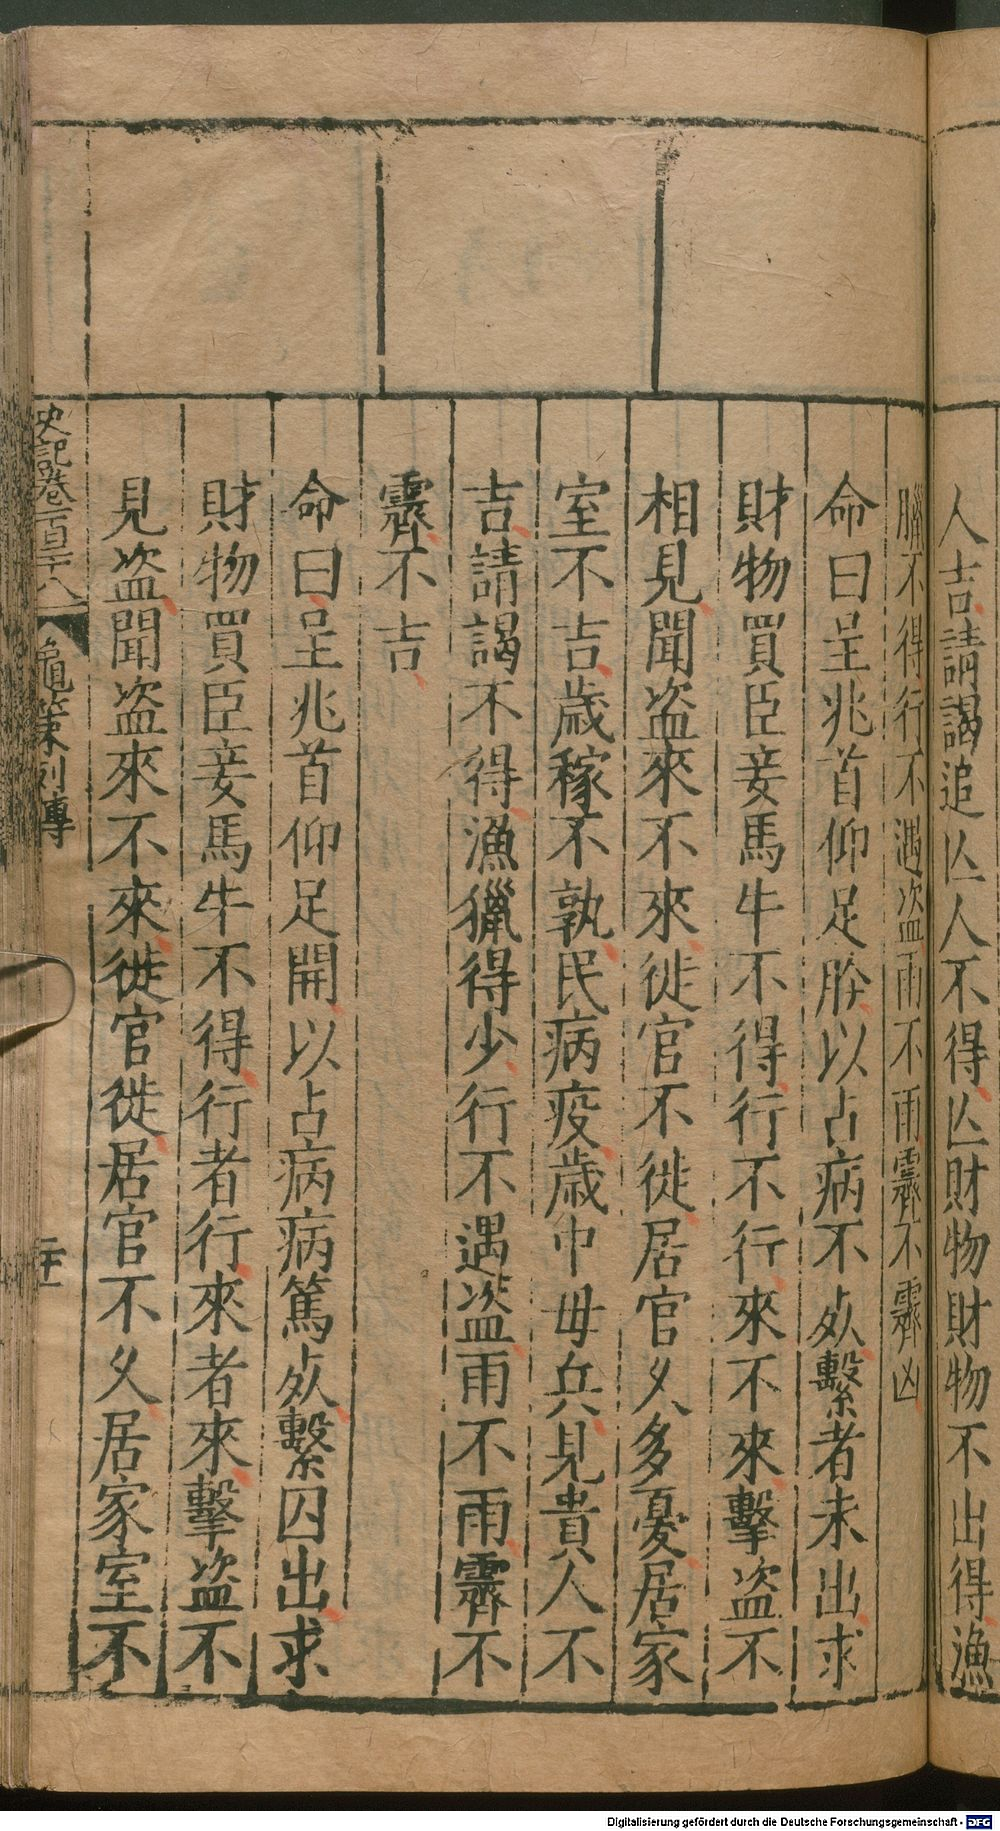 人吉請謁追亾人不得亾財物財物不出得漁
臘不得行不遇盜雨不雨霽不霽凶
命曰呈兆首仰足肣以占病不死繫者未出求
財物買臣妾馬牛不得行不行來不來擊盜不
相見聞盜來不來徙官不徙居官久多憂居家
室不吉歲稼不孰民病疫歲中毋兵見貴人不
吉請謁不得漁獵得少行不遇盜雨不雨霽不
霽不吉
命曰呈兆首仰足開以占病病篤死繫囚出求
財物買臣妾馬牛不得行者行來者來擊盜不
見盜聞盜來不來徙官徙居官不久居家室不
史記卷一百二十八 龜策列傳
Digitalisierung gefördert durch die Deutsche Forschungsgemeinschaft - DFG